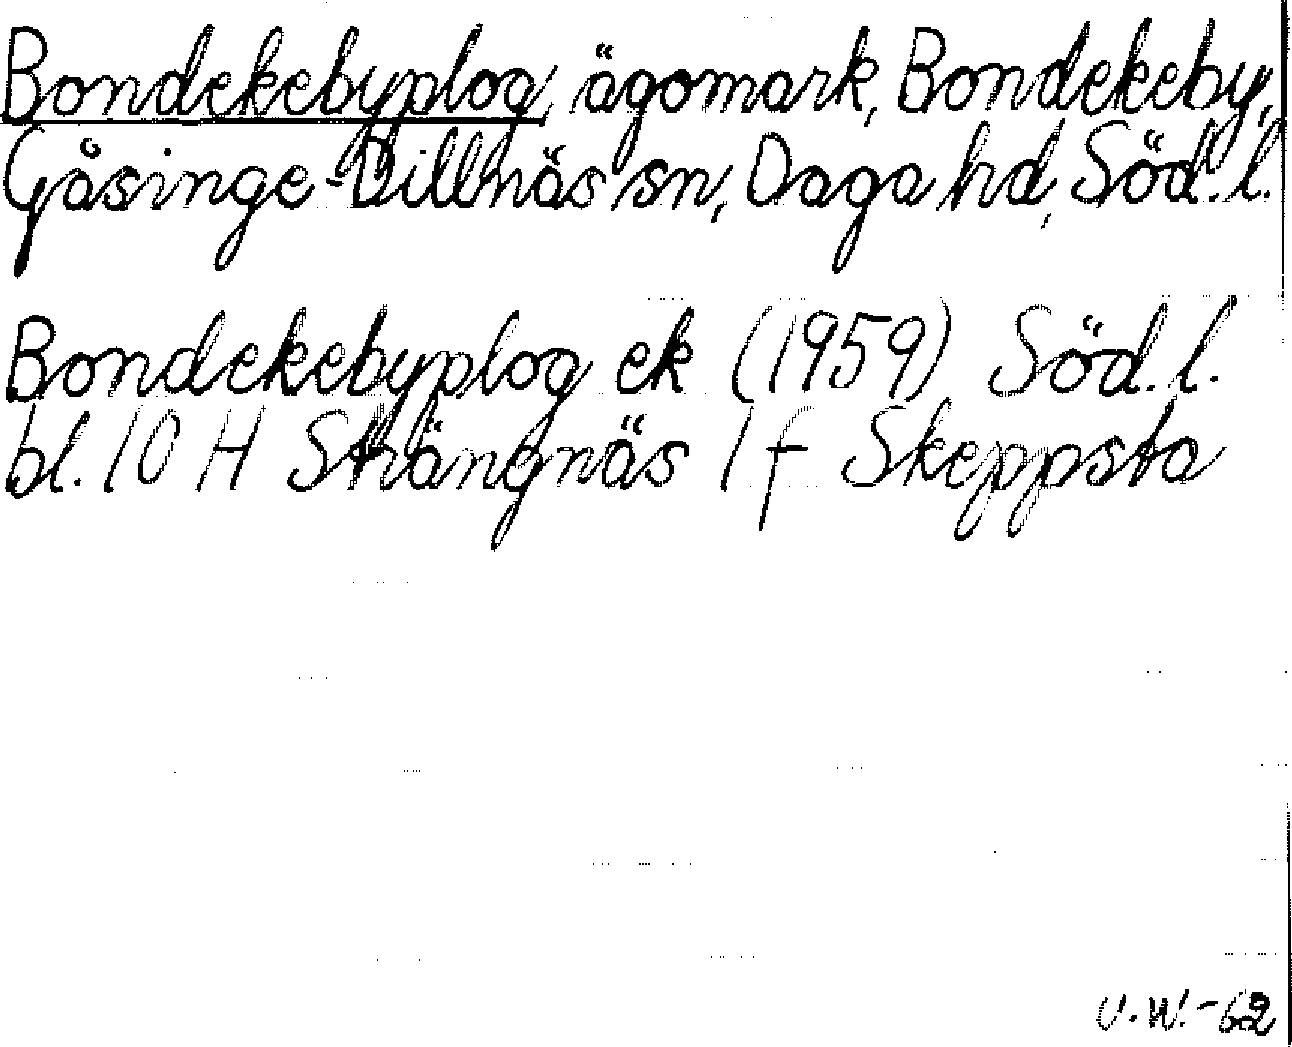 Bondekebyplog, ägomark, Bondekeby,
Gåsinge-Dillnäs sn, Daga hd, Söd. l.
Bondekebyplog ek (1959) Söd. l.
bl. 10 H Strängnäs 1 f Skeppsta
U.W.-62